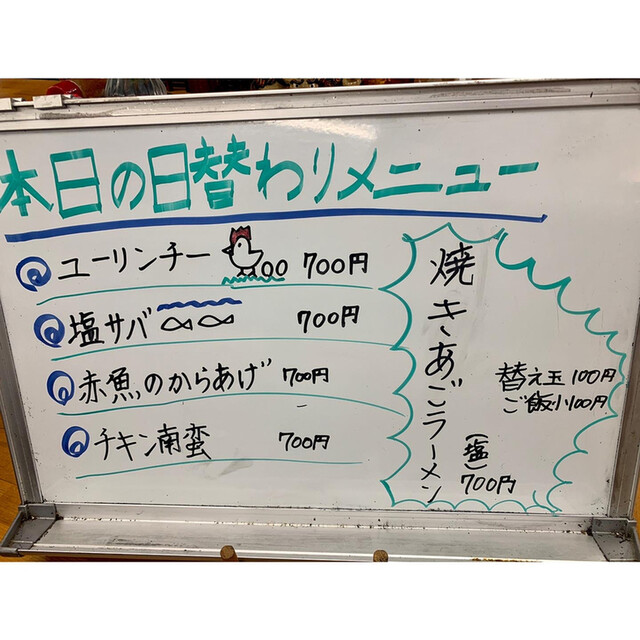 本日の日替わりメニュー
ユーリンチー 700円
塩サバ 700円
赤魚のからあげ 700円
チキン南蛮 700円
焼きあごラーメン
(塩)
700円
替え玉 100円
ご飯小100円